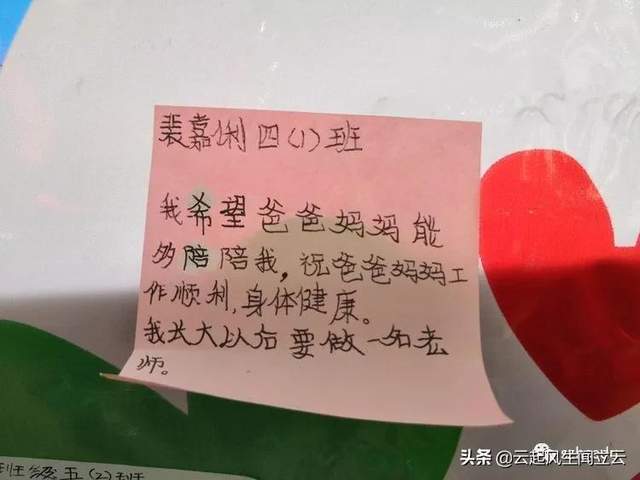 裴嘉俐四(1)班
我希望爸爸妈妈能
多陪陪我，祝爸爸妈妈工
作顺利，身体健康。
我长大以后要做一名老
师。
五(2)班
头条 @云起风生闻立云